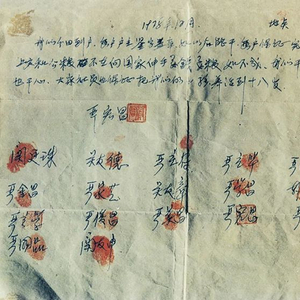 1978年12月. 地点
我们分田到户,每户户主签字盖章,如以后能干,每户保证完
上交和公粮,不在向国家伸手要钱要粮,如不成,我们干
也干心,大家社员也保证把我们的小孩养活到十八岁
严宏昌
关廷珠 关友德 严立富 严立华 严
严金昌 严家芝 关友章 严
严立学 严俊昌 严美昌 严宏昌
严国品 关友申